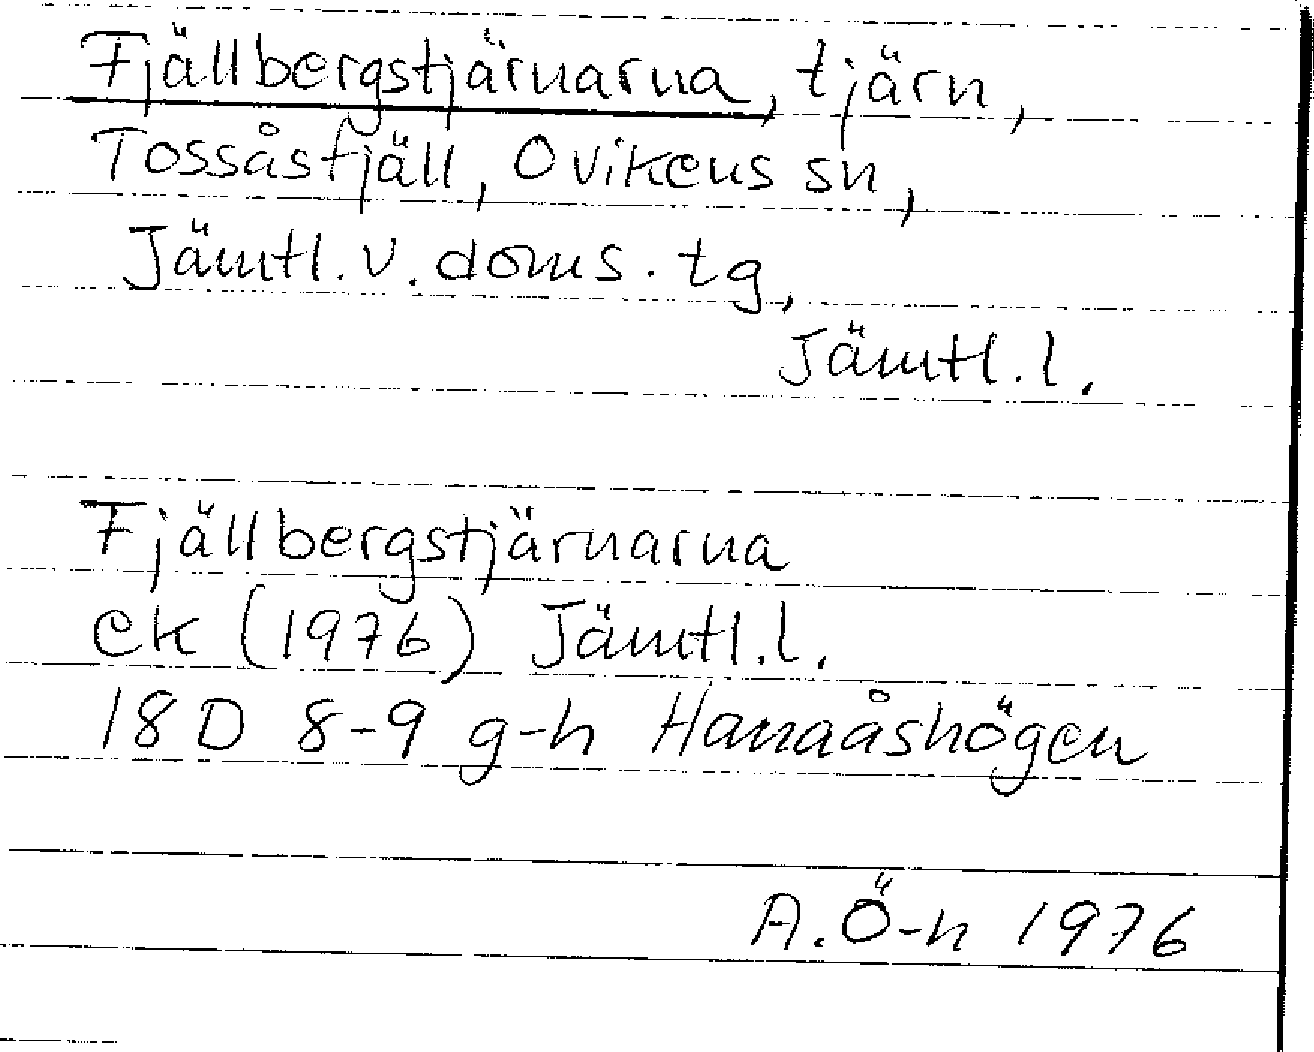 Fjällbergstjärnarna, tjärn,
Tossåsfjäll, Ovikens sn,
Jämtl. v. doms. tg,
Jämtl. l.
Fjällbergstjärnarna
ek (1976) Jämtl. l.
18 D 8-9 g-h Hanaåshögen
A. Ö-n 1976